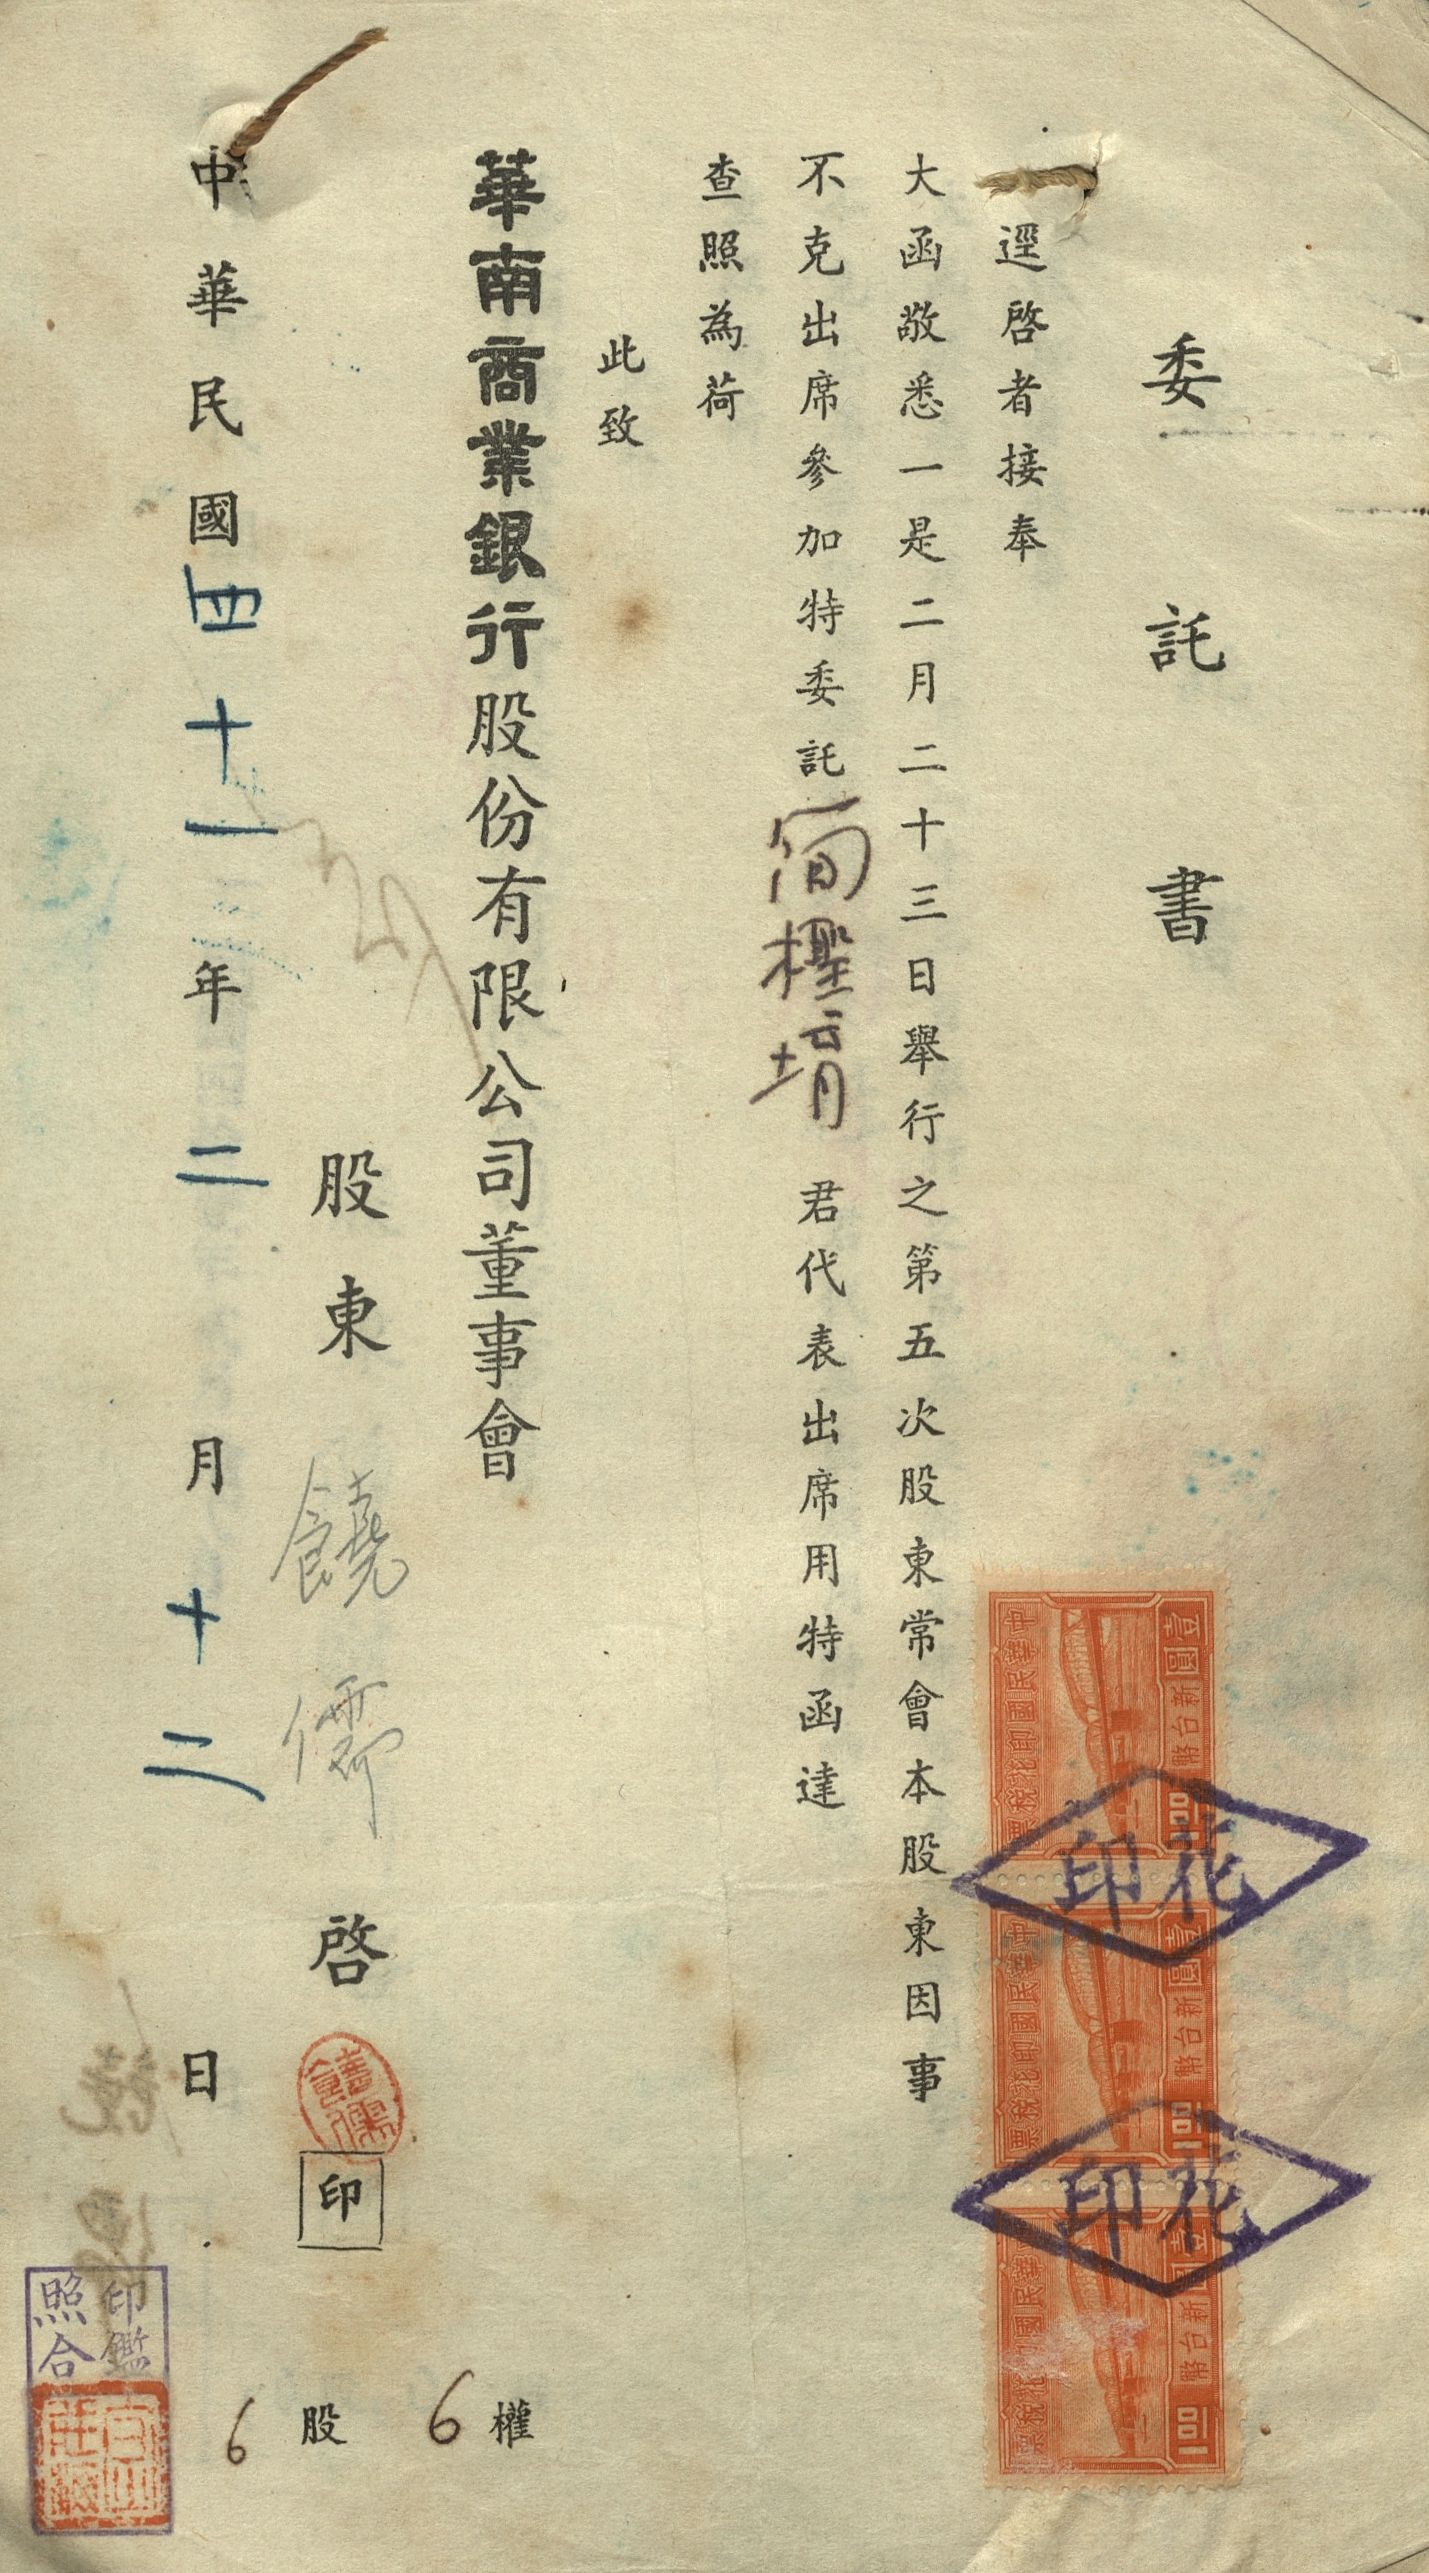 委託書
逕啓者接奉
大函敬悉一是二月二十三日舉行之第五次股東常會本股東因事
不克出席參加特委託簡檉堉君代表出席用特函達
查照為荷
此致
華南商業銀行股份有限公司董事會
股東饒儒啓印
中華民國四十一年二月十二日
6權
6股
中華民國印花稅票
壹圓新台幣
1.00
中華民國印花稅票
壹圓新台幣
1.00
中華民國印花稅票
壹圓新台幣
1.00
印花
印花
印鑑
照合